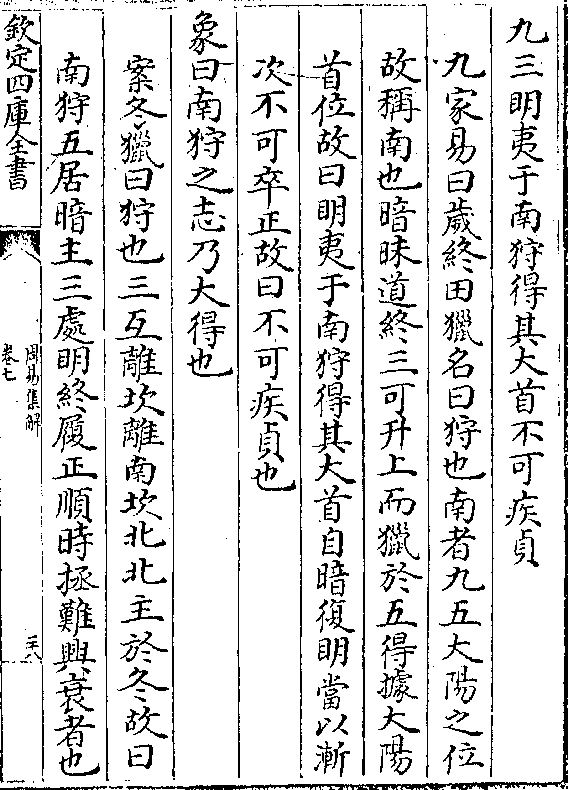 九三明夷于南狩得其大首不可疾貞
九家易曰歲終田獵名曰狩也南者九五大陽之位
故稱南也暗昧道終三可升上而獵於五得據大陽
首位故曰明夷于南狩得其大首自暗復明當以漸
次不可卒正故曰不可疾貞也
象曰南狩之志乃大得也
案冬獵曰狩也三互離坎離南坎北北主於冬故曰
南狩五居暗主三處明終履正順時拯難興衰者也
欽定四庫全書
周易集解
卷七
二十八